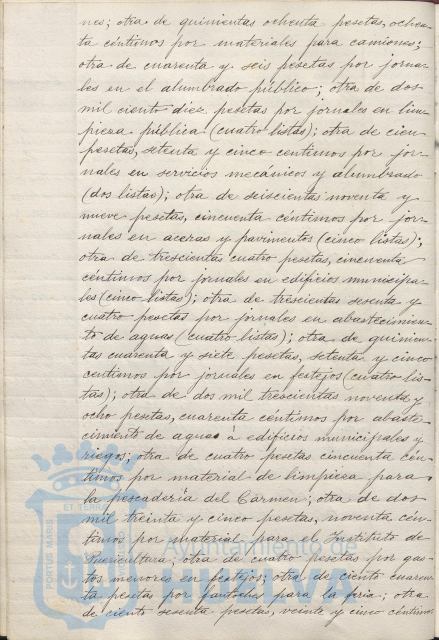 nes; otra de quinientas ochenta pesetas, ochen-
ta céntimos por materiales para camiones;
otra de cuarenta y seis pesetas por jorna-
les en el alumbrado público; otra de dos
mil ciento diez pesetas por jornales en lim-
pieza pública (cuatro listas); otra de cien
pesetas, setenta y cinco centimos por jor-
nales en servicios mecánicos y alumbrado
(dos listas); otra de seiscientas noventa y
nueve pesetas, cincuenta céntimos por jor-
nales en aceras y pavimentos (cinco listas);
otra de trescientas cuatro pesetas, cincuenta
céntimos por jornales en edificios municipa-
les (cinco listas); otra de trescientas sesenta y
cuatro pesetas por jornales en abastecimien-
to de aguas (cuatro listas); otra de quinien-
tas cuarenta y siete pesetas, setenta y cinco
centimos por jornales en festejos (cuatro lis-
tas); otra de dos mil trescientas noventa y
ocho pesetas, cuarenta céntimos por abaste-
cimiento de aguas à edificios municipales y
riegos; otra de cuatro pesetas cincuenta cén-
timos por material de limpieza para
la pescadería del Carmen; otra de dos
mil treinta y cinco pesetas, noventa cén-
timos por material para el Instituto de
Puericultura; otra de cuatro pesetas por gas-
tos menores en festejos; otra de ciento cuaren-
ta pesetas por para la feria; otra
de ciento sesenta pesetas, veinte y cinco céntimos
ET TERRÆ
PORTUS MARIS
Ayuntamiento de
HUELVA